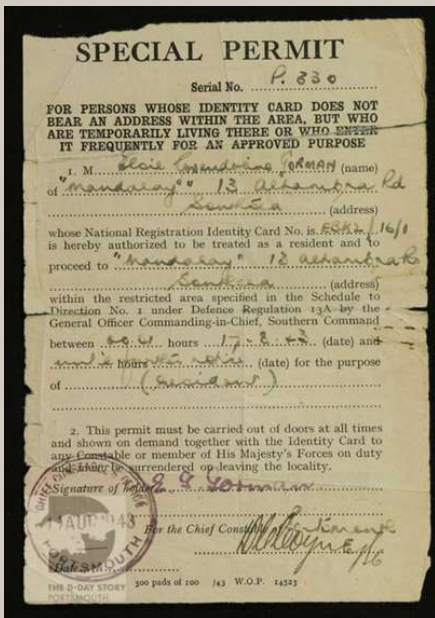 SPECIAL PERMIT
Serial No. P. 330
FOR PERSONS WHOSE IDENTITY CARD DOES NOT
BEAR AN ADDRESS WITHIN THE AREA, BUT WHO
ARE TEMPORARILY LIVING THERE OR WHO ENTER
IT FREQUENTLY FOR AN APPROVED PURPOSE
1. M Elsie GORMAN (name)
of "Mandalay" 13 Alhambra Rd
Southsea (address)
whose National Registration Identity Card No. is 16/1
is hereby authorized to be treated as a resident and to
proceed to "Mandalay" 13 Alhambra Rd
Southsea (address)
within the restricted area specified in the Schedule to
Direction No. 1 under Defence Regulation 13A by the
General Officer Commanding-in-Chief, Southern Command
between hours 17-8-43 (date) and
until hours further notice (date) for the purpose
of (resident)
2. This permit must be carried out of doors at all times
and shown on demand together with the Identity Card to
any Constable or member of His Majesty's Forces on duty
and must be surrendered on leaving the locality.
Signature of holder E G Gorman
AUG 1943
For the Chief Constable of Portsmouth
PORTSMOUTH
Date
THE D-DAY STORY
PORTSMOUTH
300 pads of 100 /43 W.O.P. 14523